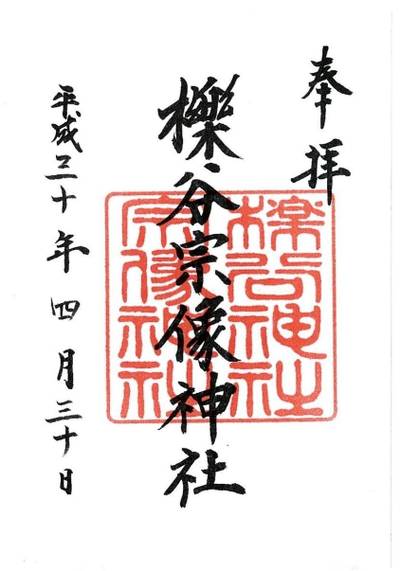 奉拝
櫟谷宗像神社
櫟谷神社
宗像神社
平成三十年四月三十日